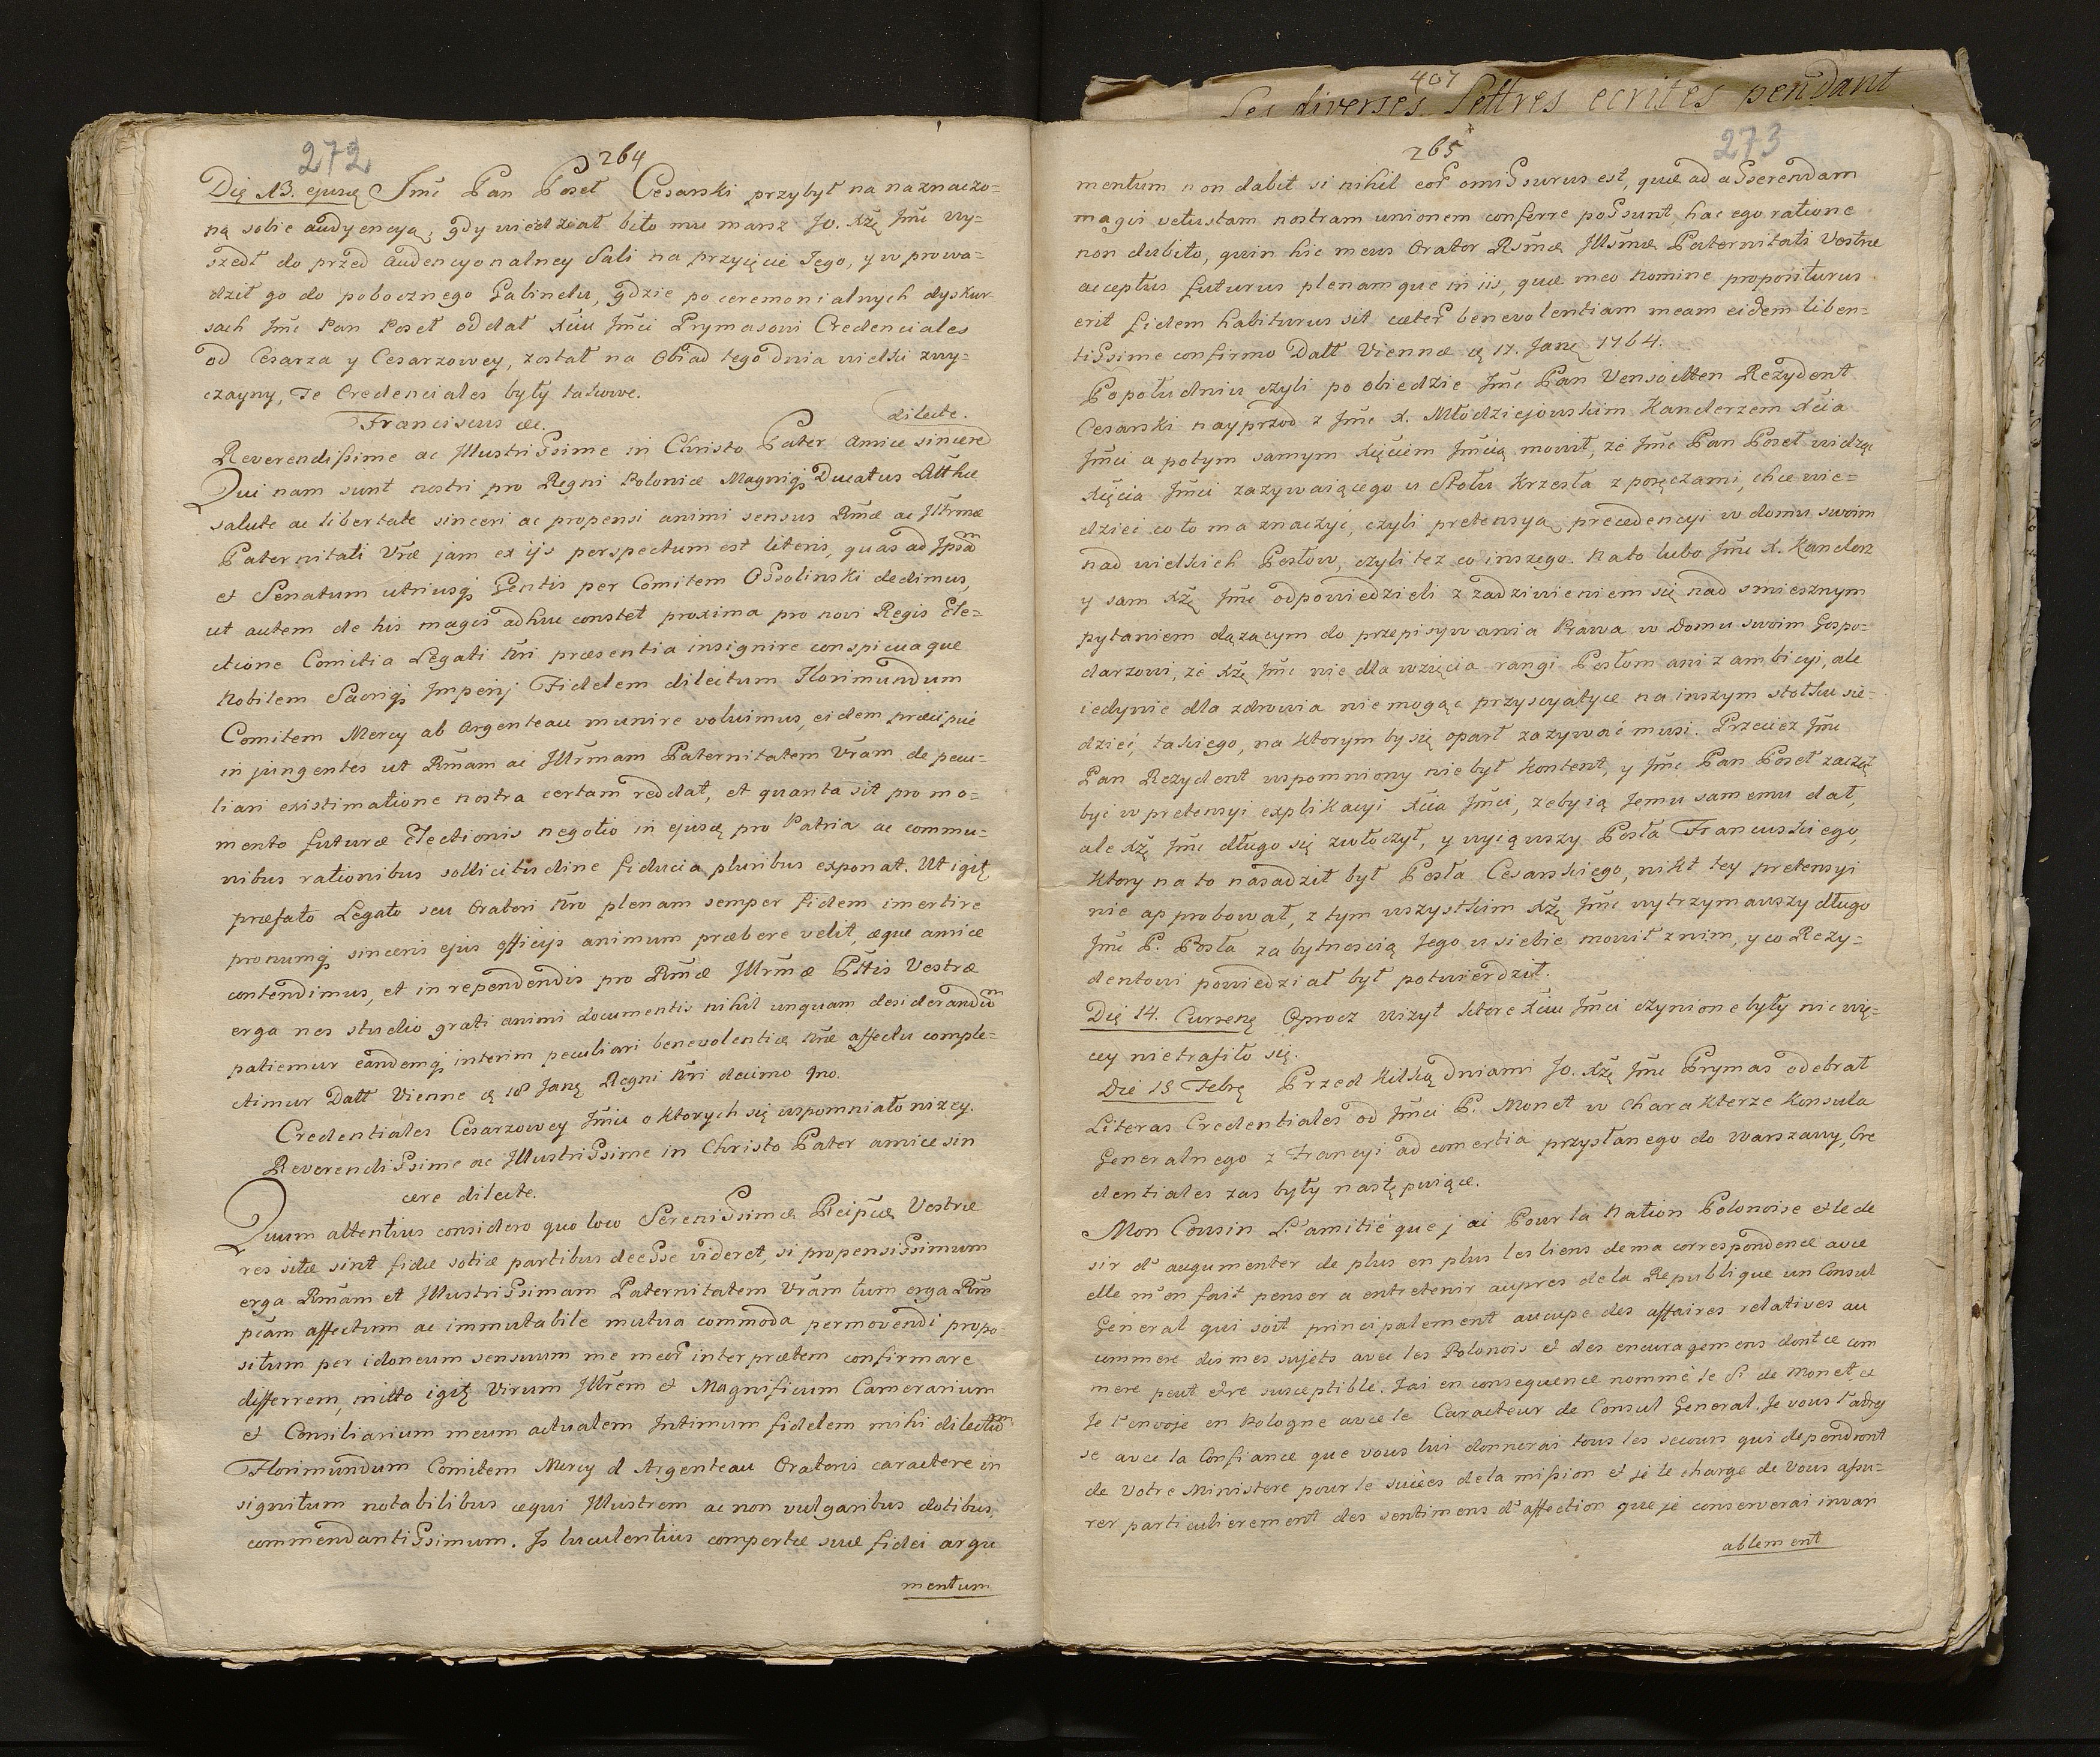 272
264
Dię 13. ejusę Jmć Pan Poseł Cesarski przybył na naznaczo=
ną sobie audyencyą, gdy wiedział bito mu marsz Jo. Xżę Jmć wy=
szedł do przed Audencyonalney Sali na przyięcie Jego, y w prowa=
dził go do pobocznego Gabinetu, gdzie po ceremonialnych dyskur=
sach Jmć Pan Poseł oddał Xciu Jmci Prymasowi Credenciales
od Cesarza y Cesarzowey, został na Obiad tego dnia wielki zwy=
czayny, Te Credenciales były takowe.
Franciscus &c. dilecte.
Reverendissime ac Illustrissime in Christo Pater Amice sincere
Qui nam sunt nostri pro Regni Poloniæ Magniq́ Ducatus Litthæ
salute ac libertate sinceri ac propensi animi sensus Rm̃æ ac Jllr̃mæ
Paternitati Vr̃æ jam ex ijs perspectum est literis, quas ad Jpsãm
et Senatum utriusq́ Gentis per Comitem Ossolinski dedimus,
ut autem de his magis adhuc constet proxima pro novi Regis Ele=
ctione Comitia Legati Nr̃i præsentia insignire conspicuaque
Nobilem Sacriq́ Imperij Fidelem dilectum Florimundum
Comitem Mercy ab Argenteau munire voluimus, eidem præcipue
in jungentes ut Rm̃am ac Jllr̃mam Paternitatem Vr̃am de pecu=
liari existimatione nostra certam reddat, et quanta sit pro mo=
mento futuræ Electionis negotio in ejusę pro Patria ac commu=
nibus rationibus sollicitudine fiducia pluribus exponat. Ut igit̨
præfato Legato seu Oratori Nr̃o plenam semper fidem imertire
pronumq́ sinceris ejus officijs animum præbere velit, æque amice
contendimus, et in rependendis pro Rm̃æ Jllr̃mæ Pttis Vestræ
erga nos studio grati animi documentis nihil unquam desiderandum
patiemur eandemq́ interim peculiari benevolentiæ Nr̃æ affectu comple=
ctimur Datt Vienne ę 18 Janę Regni Nr̃i decimo 9no.
Credentiales Cesarzowey Jmci o ktorych się wspomniało nizey.
Reverendissime ac Illustrissime in Christo Pater amice sin
cere dilecte.
Quum attentius considero quo loco Serenissimæ Rcipuæ Vestræ
res sitæ sint fidæ sotiæ partibus deesse videret, si propensissimum
erga Rm̃am et Illustrissimam Paternitatem Vr̃am tum erga Rm̃
pcam affectum ac immutabile mutua commoda permovendi propo=
situm per idoneum sensuum me meor̃ interprætem confirmare
differrem, mitto igit̨ Virum Jllr̃em et Magnificum Camerarium
et Consiliarium meum actualem Intimum fidelem mihi dilectum
Florimundum Comitem Mercy d Argenteau Oratoris caractere in
signitum notabilibus æqui Illustrem ac non vulgaribus dotibus,
commendantissimum. Is luculentius compertæ suæ fidei argu
mentum
407
Les diverses Lettres ecrites pendant
265
273
mentum non dabit si nihil eor̃ omissurus est, quæ ad asserendam
magis vetustam nostram unionem conferre possunt, hac ego ratione
non dubito, quin hic meus Orator Rsm̃æ Jllsm̃æ Paternitati Vestræ
acceptus futurus plenamque in iis, quæ meo Nomine propositurus
erit fidem habiturus sit cæter̃ benevolentiam meam eidem liben=
tissime confirmo Datt Viennæ ę 17. Janę 1764.
Popołudniu czyli po obiedzie Jmć Pan Vensoitten Rezydent
Cesarski nayprzod z Jmć X. Młodziejowskim Kanclerzem Xcia
Jmci a potym samym Xięciem Jmcią mowił, ze Jmć Pan Poseł widząc
Xięcia Jmci zazywaiącego u Stołu Krzesła z poręczami, chce wie=
dziec co to ma znaczyć, czyli pretensya precedencyi w domu swoim
nad wielkich Posłow, czyli tez co inszego. Na to lubo Jmć X. Kanclerz
y sam Xżę Jmć odpowiedzieli z zadziwieniem się nad smiesznym
pytaniem dązącym do przepisywania Prawa w Domu swoim Gospo=
darzowi, ze Xżę Jmć nie dla wzięcia rangi Posłom ani z ambicyi, ale
iedynie dla zdrowia nie mogąc przyzwyatyce na inszym stołku sie=
dzieć, takiego, na ktorym by się oparł zazywać musi. Przeciez Jmć
Pan Rezydent wspomniony nie był kontent, y Jmć Pan Poseł zaczął
być w pretensyi explikacyi Xcia Jmci, zeby ią Jemu samemu dał,
ale Xżę Jmć długo się zwłoczył, y wyiąwszy Posła Francuskiego,
ktory na to nasadził był Posła Cesarskiego, nikt tey pretensyi
nie approbował, z tym wszystkim Xżę Jmć wytrzymawszy długo
Jmć P. Posła za bytnoscią Jego u siebie mowił znim, y co Rezy=
dentowi powiedział był potwierdził.
Dię 14. Currenę Oprocz wizyt ktore Xciu Jmci czynione były nic wię=
cey nietrafiło się.
Dié 15 Febrę Przed kilką dniami Jo. Xżę Jmć Prymas odebrał
Literas Credentiales od Jmci P. Monet w Charakterze Konsula
Generalnego z Francyi ad comertia przysłanego do Warszawy, Cre
dentiales zas były następuiące.
Mon Cousin L'amitié que j'ai Pour la Nation Polonoise et le de
sir d'augumenter de plus en plus les liens de ma correspondence avec
elle m'en fait penser a entretenir aupres de la Republique un Consul
General qui soit principalement aucupe des affaires relatives au
commerce dis mes sujets avec les Polonois et des encuragemens dont ce com
merce peut etre susceptible. Jai en consequence nommé le Sr de Monet, et
Je l'envoje en Pologne avec le Caracteur de Consul General. Je vous l'adres
se avec la Confiance que vous lui donnerai tous les secours qui dependront
de Votre Ministere pour le succes de la mission et je le charge de Vous assu=
rer particulierement des sentimens d'affection que je conserverai invari
ablement